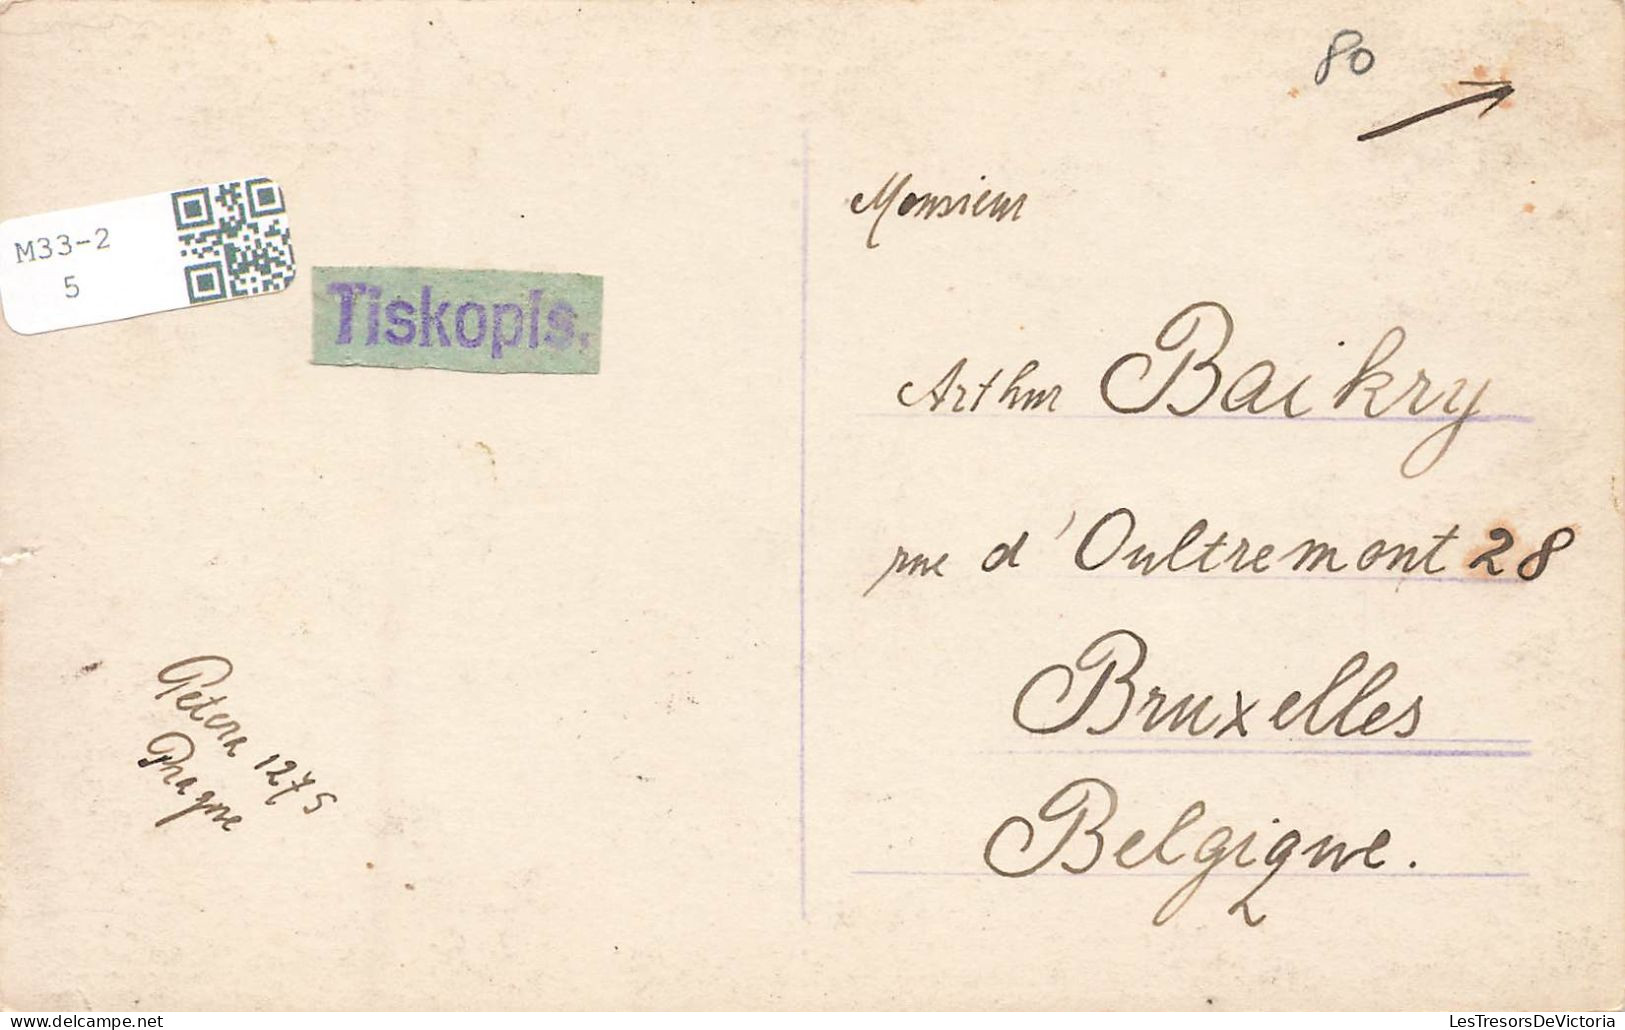 80
M33-2
5
Tiskopis.
Monsieur
Arthur Baikry
rue d'Oultremont 28
Bruxelles
Belgique.
Petera 1275
Prague
LesTresorsDeVictoria